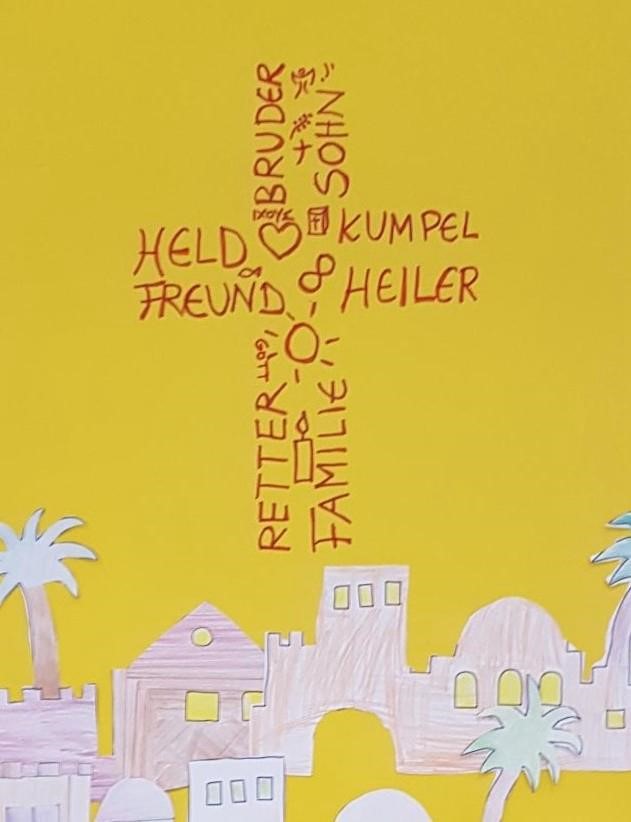 BRUDER
SOHN
HELD
KUMPEL
FREUND
HEILER
GOTT
RETTER
FAMILIE